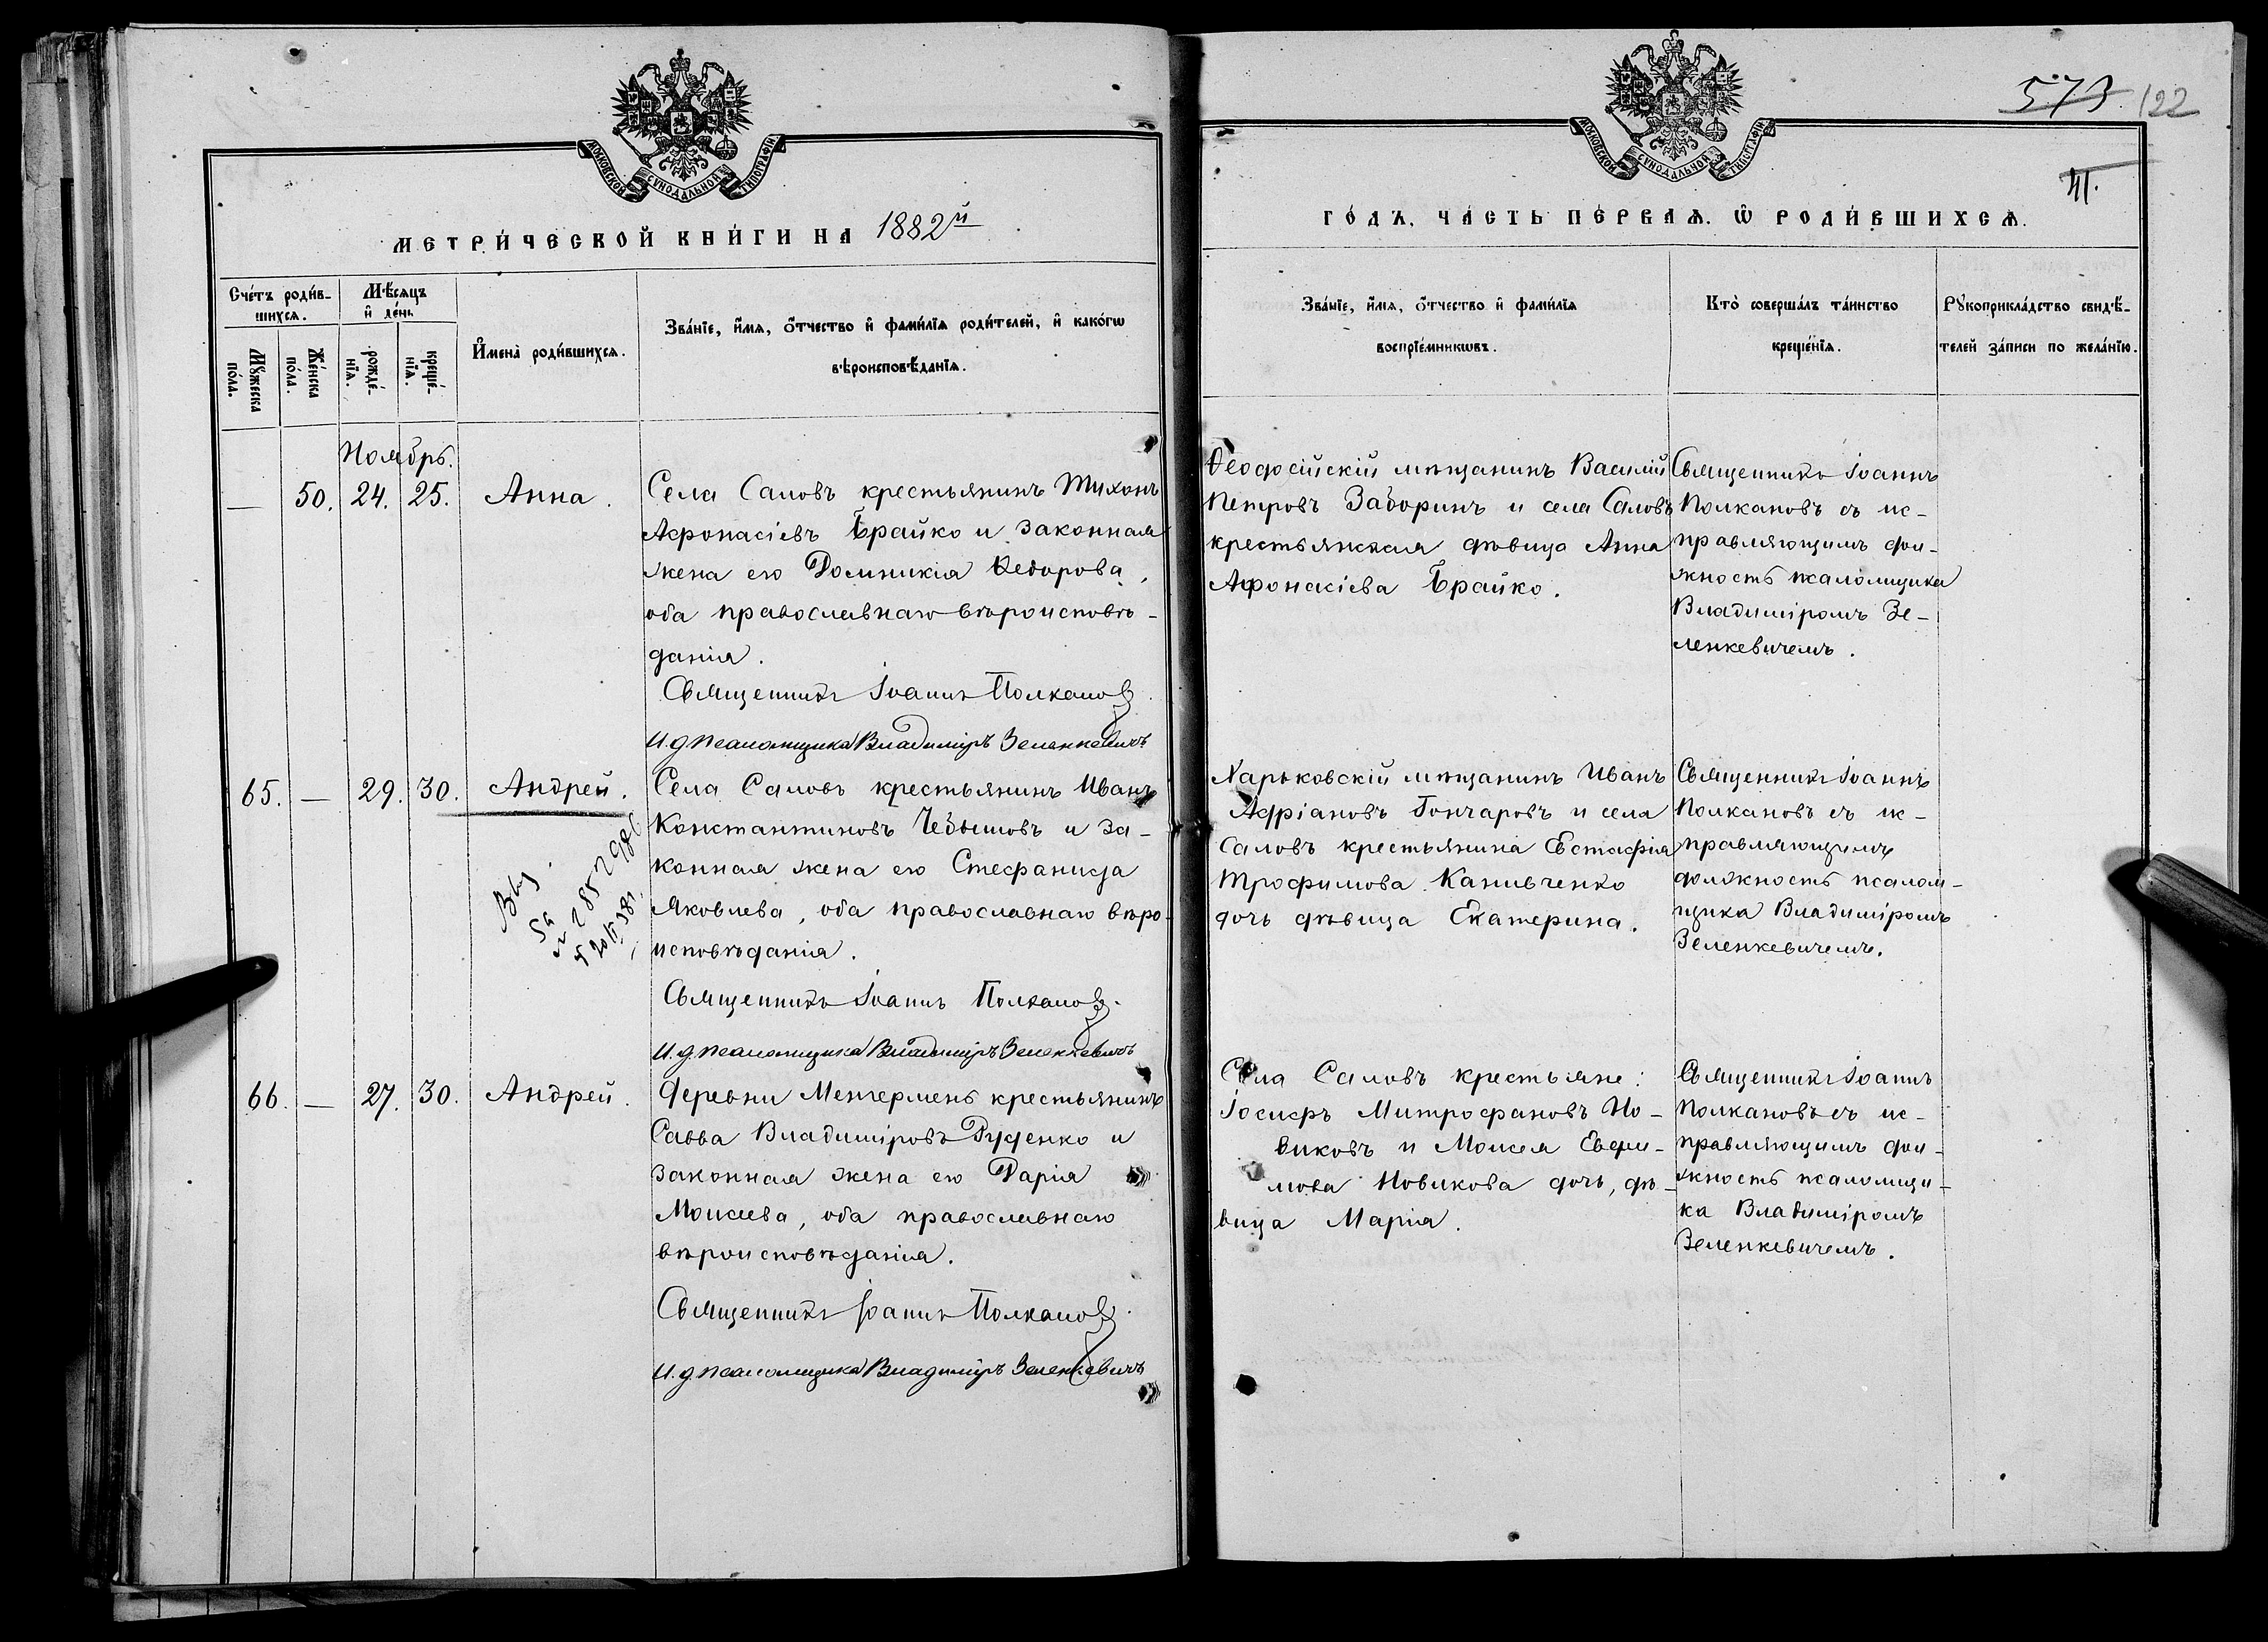 МОСКОВСКОЙ СѴНОДАЛЬНОЙ ТИПОГРАФІИ
МЕТРИ́ЧЕСКОЙ КНИ́ГИ НА 1882й
Сче́тъ роди́в-
шихся.
Мѣ́сяцъ
и҆ де́нь
Мꙋ́жеска
по́ла.
Же́нска
по́ла.
рожде́-
нїя.
креще́-
нїя.
И҆мена̀ роди́вшихся.
Зва́нїе, и҆́мя, ѻ҆́тчество и҆ фами́лїя роди́телей, и҆ како́гѡ
вѣроисповѣ́данїя.
Ноябрь.
— 50. 24. 25. Анна.
Села Саловъ крестьянинъ Тихонъ
Афонасіевъ Брайко и законная
жена его Домникія Ѳедорова,
оба православнаго вѣроисповѣ-
данія.
Священникъ Іоаннъ Полкановъ.
И. д. псаломщика Владиміръ Зеленкевичъ
65. — 29. 30. Андрей.
Села Саловъ крестьянинъ Иванъ
Константиновъ Чебышовъ и за-
конная жена его Стефанида
Яковлева, оба православнаго вѣро-
исповѣданія.
Священникъ Іоаннъ Полкановъ.
И. д. псаломщика Владиміръ Зеленкевичъ
66. — 27. 30. Андрей.
Деревни Менгерменъ крестьянинъ
Савва Владиміровъ Руденко и
законная жена его Дарія
Моисеева, оба православнаго
вѣроисповѣданія.
Священникъ Іоаннъ Полкановъ.
И. д. псаломщика Владиміръ Зеленкевичъ
573. 122
41.
МОСКОВСКОЙ СѴНОДАЛЬНОЙ ТИПОГРАФІИ
ГО́ДЪ, ЧА́СТЬ ПЕ́РВАЯ. Ѽ РОДИ́ВШИХСЯ.
Зва́нїе, и҆́мя, ѻ҆́тчество и҆ фами́лїя
воспрїе́мникѡвъ.
Кто̀ соверша́лъ та́инство
креще́нїя.
Рꙋкоприкла́дство свидѣ́-
телей за́писи по жела́нїю.
Ѳеодосійскій мѣщанинъ Василій
Петровъ Заборинъ и села Саловъ
крестьянская дѣвица Анна
Афонасіева Брайко.
Священникъ Іоаннъ
Полкановъ съ ис-
правляющимъ дол-
жность псаломщика
Владиміромъ Зе-
ленкевичемъ.
Харьковскій мѣщанинъ Иванъ
Адріановъ Гончаровъ и села
Саловъ крестьянина Евстафія
Трофимова Канивченко
дочь дѣвица Екатерина.
Священникъ Іоаннъ
Полкановъ съ ис-
правляющимъ
должность псалом-
щика Владиміромъ
Зеленкевичемъ.
Села Саловъ крестьяне:
Іосифъ Митрофановъ Но-
виковъ и Моисея Евфи-
мова Новикова дочь, дѣ-
вица Марія.
Священникъ Іоаннъ
Полкановъ съ ис-
правляющимъ дол-
жность псаломщи-
ка Владиміромъ
Зеленкевичемъ.